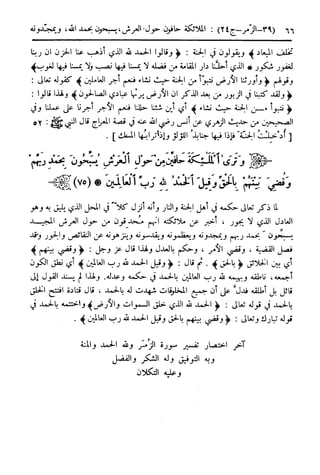 ٦٦ (٣٩-الزمر-ج٢٤) : الملائكة حافون حول العرش، يسبحون بحمد الله، ويمجدونه
تخلف الميعاد ﴾ ويقولون في الجنة : ﴿ وقالوا الحمد لله الذي أذهب عنا الحزن ان ربنا
لغفور شكور * الذي أحلنا دار المقامة من فضله لا يمسنا فيها نصب ولا يمسنا فيها لغوب ﴾
وقولهم ﴿ وأورثنا الأرض نتبوأ من الجنة حيث نشاء فنعم أجر العاملين ﴾ كقوله تعالى :
﴿ ولقد كتبنا في الزبور من بعد الذكر ان الأرض يرثها عبادي الصالحون ﴾ ولهذا قالوا :
﴿ نتبوأ من الجنة حيث نشاء ﴾ أي أين شئنا حللنا فنعم الأجر أجرنا على عملنا وفي
الصحيحين من حديث الزهري عن أنس رضي الله عنه في قصة المعراج قال النبي ﷺ : ٥٢
[ أُدخلت الجنة، فإذا فيها جنابذ اللؤلؤ وإذا ترابها المسك ] .
﴿ وَتَرَى الْمَلَائِكَةَ حَافِّينَ مِنْ حَوْلِ الْعَرْشِ يُسَبِّحُونَ بِحَمْدِ رَبِّهِمْ
وَقُضِيَ بَيْنَهُمْ بِالْحَقِّ وَقِيلَ الْحَمْدُ لِلَّهِ رَبِّ الْعَالَمِينَ ﴾ * (٧٥)
لما ذكر تعالى حكمه في أهل الجنة والنار وأنه أنزل كلاً في المحل الذي يليق به وهو
العادل الذي لا يجور ، أخبر عن ملائكته انهم محدقون من حول العرش المجيد
يسبحون بحمد ربهم ويمجدونه ويعظمونه ويقدسونه وينزهونه عن النقائص والجور وقد
فصل القضية ، وقضي الأمر ، وحكم بالعدل ولهذا قال عز وجل : ﴿ وقضي بينهم ﴾
أي بين الخلائق ﴿ بالحق ﴾ . ثم قال : ﴿ وقيل الحمد لله رب العالمين ﴾ أي نطق الكون
أجمعه، ناطقه وبهيمه لله رب العالمين بالحمد في حكمه وعدله. ولهذا لم يسند القول إلى
قائل بل أطلقه فدل على أن جميع المخلوقات شهدت له بالحمد ، قال قتادة افتتح الخلق
بالحمد في قوله تعالى : ﴿ الحمد لله الذي خلق السموات والأرض ﴾ واختتمه بالحمد في
قوله تبارك وتعالى : ﴿ وقضي بينهم بالحق وقيل الحمد لله رب العالمين ﴾ .
آخر اختصار تفسير سورة الزمر ولله الحمد والمنة
وبه التوفيق وله الشكر والفضل
وعليه التكلان